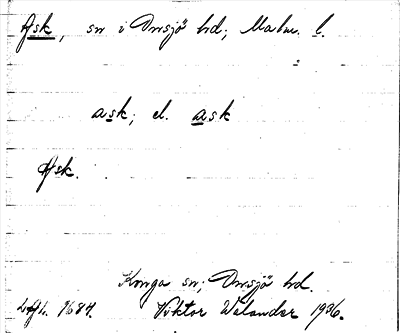 Ask, sn i Onsjö hd; Malm. l.
ask; el. ask
Ask.
Konga sn; Onsjö hd.
Viktor Welander 1936.